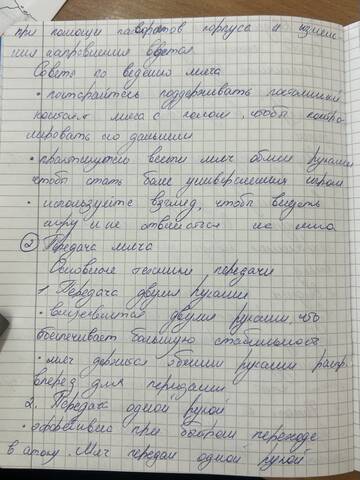 при помощи поворотов корпуса и измене
ния направления ведется
Советы по ведению мяча
• постарайтесь поддерживать постоянный
контакт мяча с полом, чтобы контро
лировать его дальнейш
• практикуйте вести мяч обеими руками
чтобы стать более универсальным игроком
• используйте взгляд, чтобы видеть
игру и не отвлекаться на мяч
② Передача мяча
Основные техники передачи
1 Передача двумя руками
• выполняется двумя руками, что
обеспечивает большую стабильность
• мяч держится обеими руками
вперед для передачи
2. Передача одной рукой
• эффективно при быстром переходе
в атаку. Мяч передан одной рукой